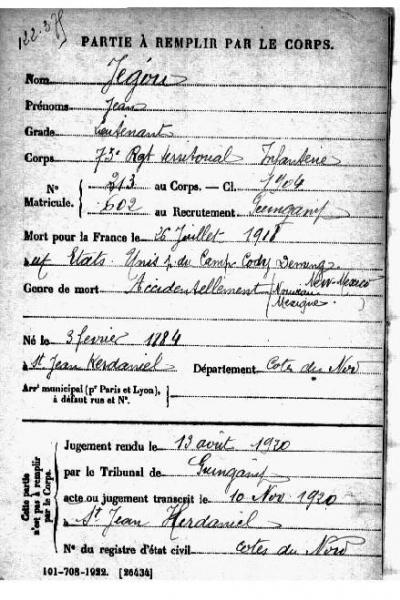 122.375
PARTIE À REMPLIR PAR LE CORPS.
Nom Jégou
Prénoms Jean
Grade Lieutenant
Corps 73e Rgt territorial Infanterie
N° Matricule. { 213 au Corps. — Cl. 1904
602 au Recrutement Guingamp
Mort pour la France le 26 Juillet 1918
aux États Unis du Camp Cody Deming
New-Mexico
Genre de mort Accidentellement (Nouveau Mexique)
Né le 3 février 1884
à St Jean Kerdaniel Département Cotes du Nord
Arrt municipal (pr Paris et Lyon), à défaut rue et N°.
Cette partie n'est pas à remplir par le Corps.
Jugement rendu le 13 août 1920
par le Tribunal de Guingamp
acte ou jugement transcrit le 10 Nov 1920
à St Jean Kerdaniel
N° du registre d'état civil Cotes du Nord
101-708-1922. [26434]